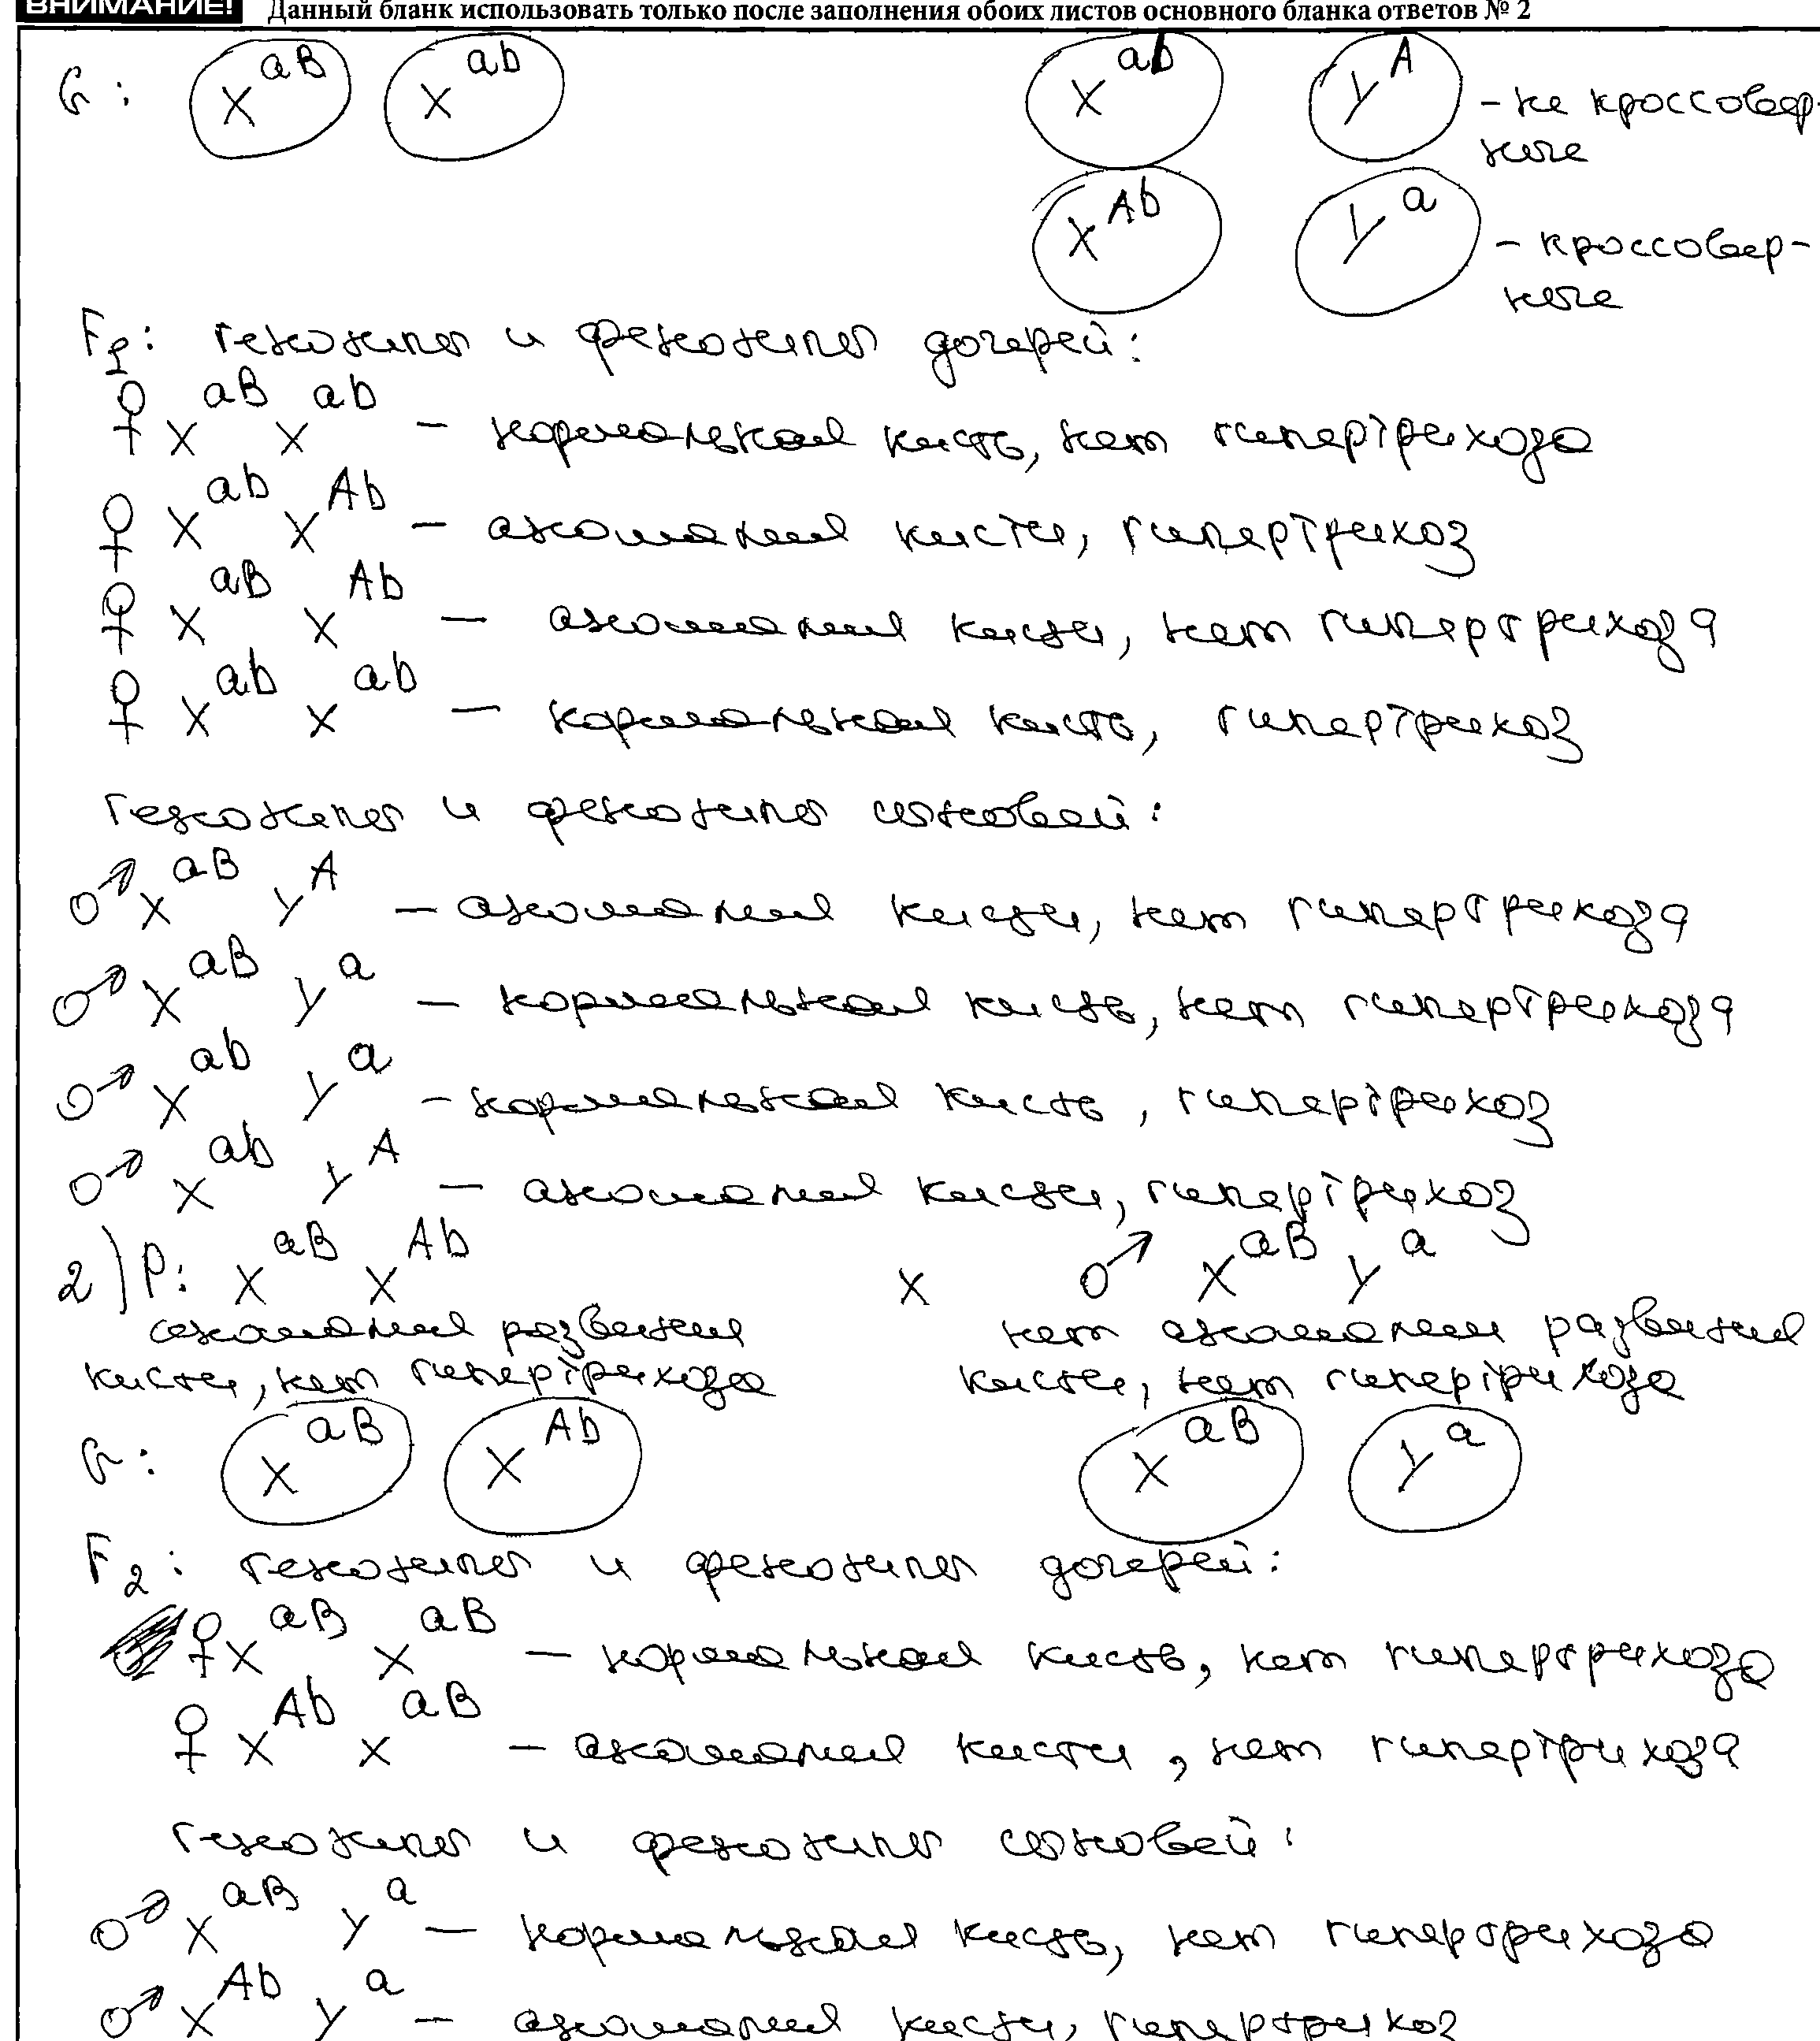 ВНИМАНИЕ! Данный бланк использовать только после заполнения обоих листов основного бланка ответов № 2
G: X^aB X^ab X^ab Y^A - не кроссовер-
ные
X^Ab Y^a - кроссовер-
ные
F1: генотипы и фенотипы дочерей:
♀ X^aB X^ab — нормальная кисть, нет гипертрихоза
♀ X^ab X^Ab — аномалия кисти, гипертрихоз
♀ X^aB X^Ab — аномалия кисти, нет гипертрихоза
♀ X^ab X^ab — нормальная кисть, гипертрихоз
генотипы и фенотипы сыновей:
♂ X^aB Y^A — аномалия кисти, нет гипертрихоза
♂ X^aB Y^a — нормальная кисть, нет гипертрихоза
♂ X^ab Y^a — нормальная кисть, гипертрихоз
♂ X^ab Y^A — аномалия кисти, гипертрихоз
2) P: X^aB X^Ab x ♂ X^aB Y^a
аномалия развития нет аномалии развития
кисти, нет гипертрихоза кисти, нет гипертрихоза
G: X^aB X^Ab X^aB Y^a
F2: генотипы и фенотипы дочерей:
♀ X^aB X^aB — нормальная кисть, нет гипертрихоза
♀ X^Ab X^aB — аномалия кисти, нет гипертрихоза
генотипы и фенотипы сыновей:
♂ X^aB Y^a — нормальная кисть, нет гипертрихоза
♂ X^Ab Y^a — аномалия кисти, гипертрихоз